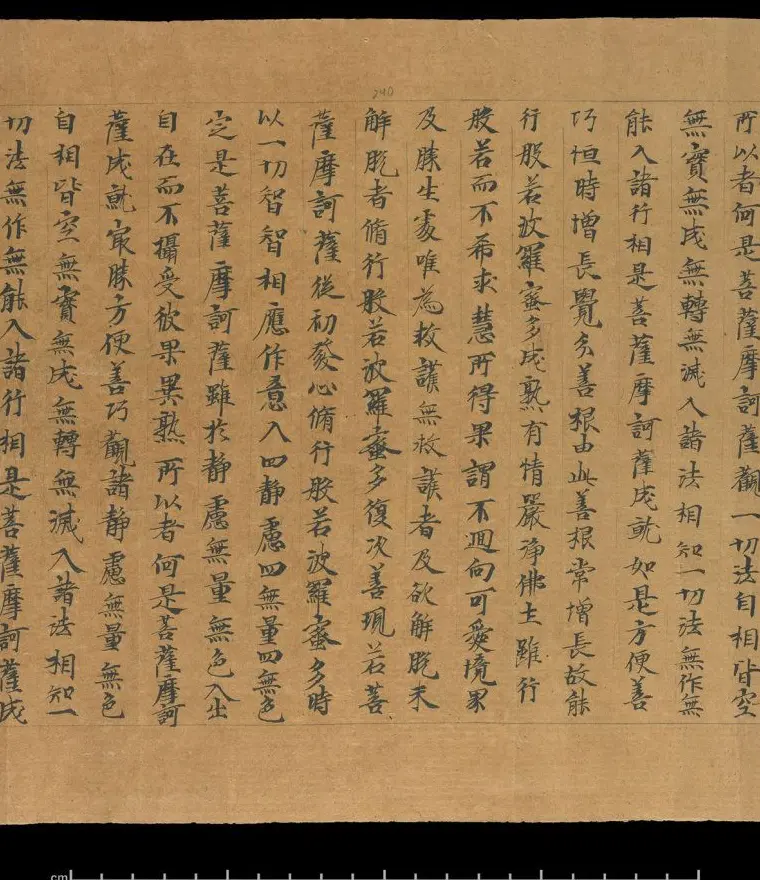 240
所以者何是菩薩摩訶薩觀一切法自相皆空
無實無成無轉無滅入諸法相知一切法無作無
能入諸行相是菩薩摩訶薩成就如是方便善
巧恒時增長覺分善根由此善根常增長故能
行般若波羅蜜多成熟有情嚴淨佛土雖行
般若而不希求慧所得果謂不迴向可愛境界
及勝生處唯為救護無救護者及欲解脫未
解脫者脩行般若波羅蜜多復次善現若菩
薩摩訶薩從初發心脩行般若波羅蜜多時
以一切智智相應作意入四靜慮四無量四無色
定是菩薩摩訶薩雖於靜慮無量無色入出
自在而不攝受彼果異熟所以者何是菩薩摩訶
薩成就最勝方便善巧觀諸靜慮無量無色
自相皆空無實無成無轉無滅入諸法相知一
切法無作無能入諸行相是菩薩摩訶薩成
cm